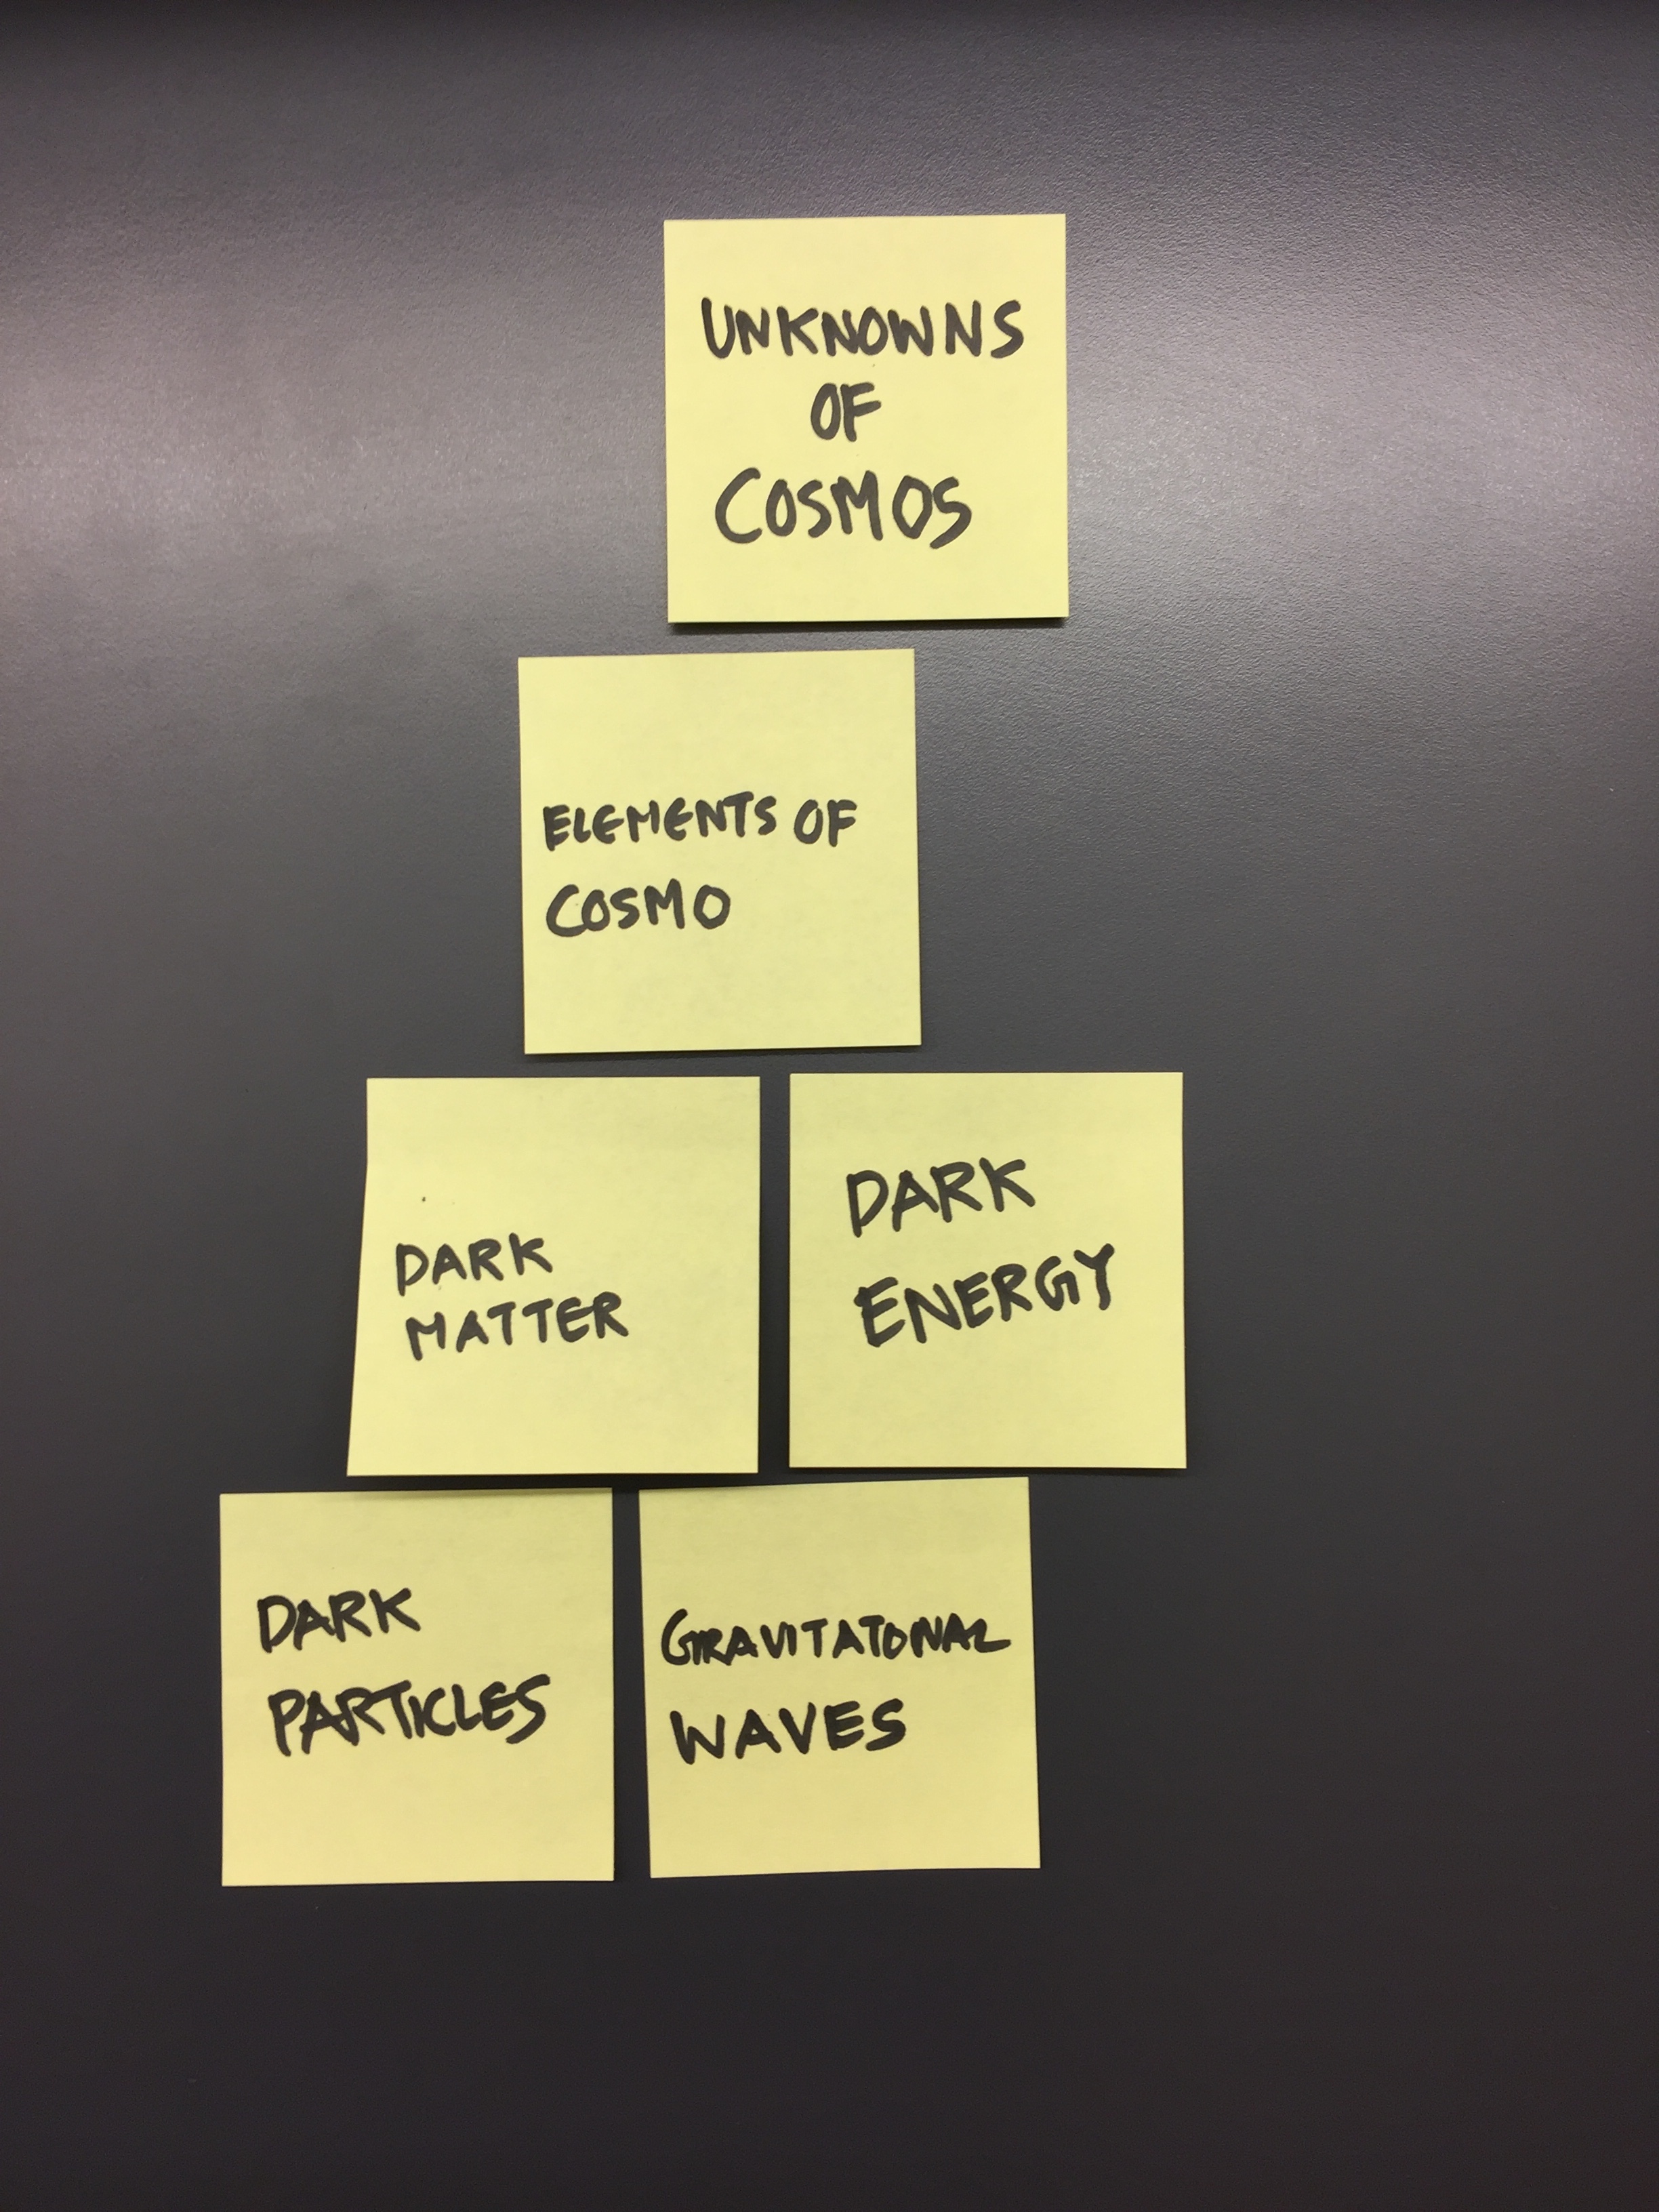 UNKNOWNS
OF
COSMOS
ELEMENTS OF
COSMO
DARK
MATTER
DARK
ENERGY
DARK
PARTICLES
GRAVITATONAL
WAVES